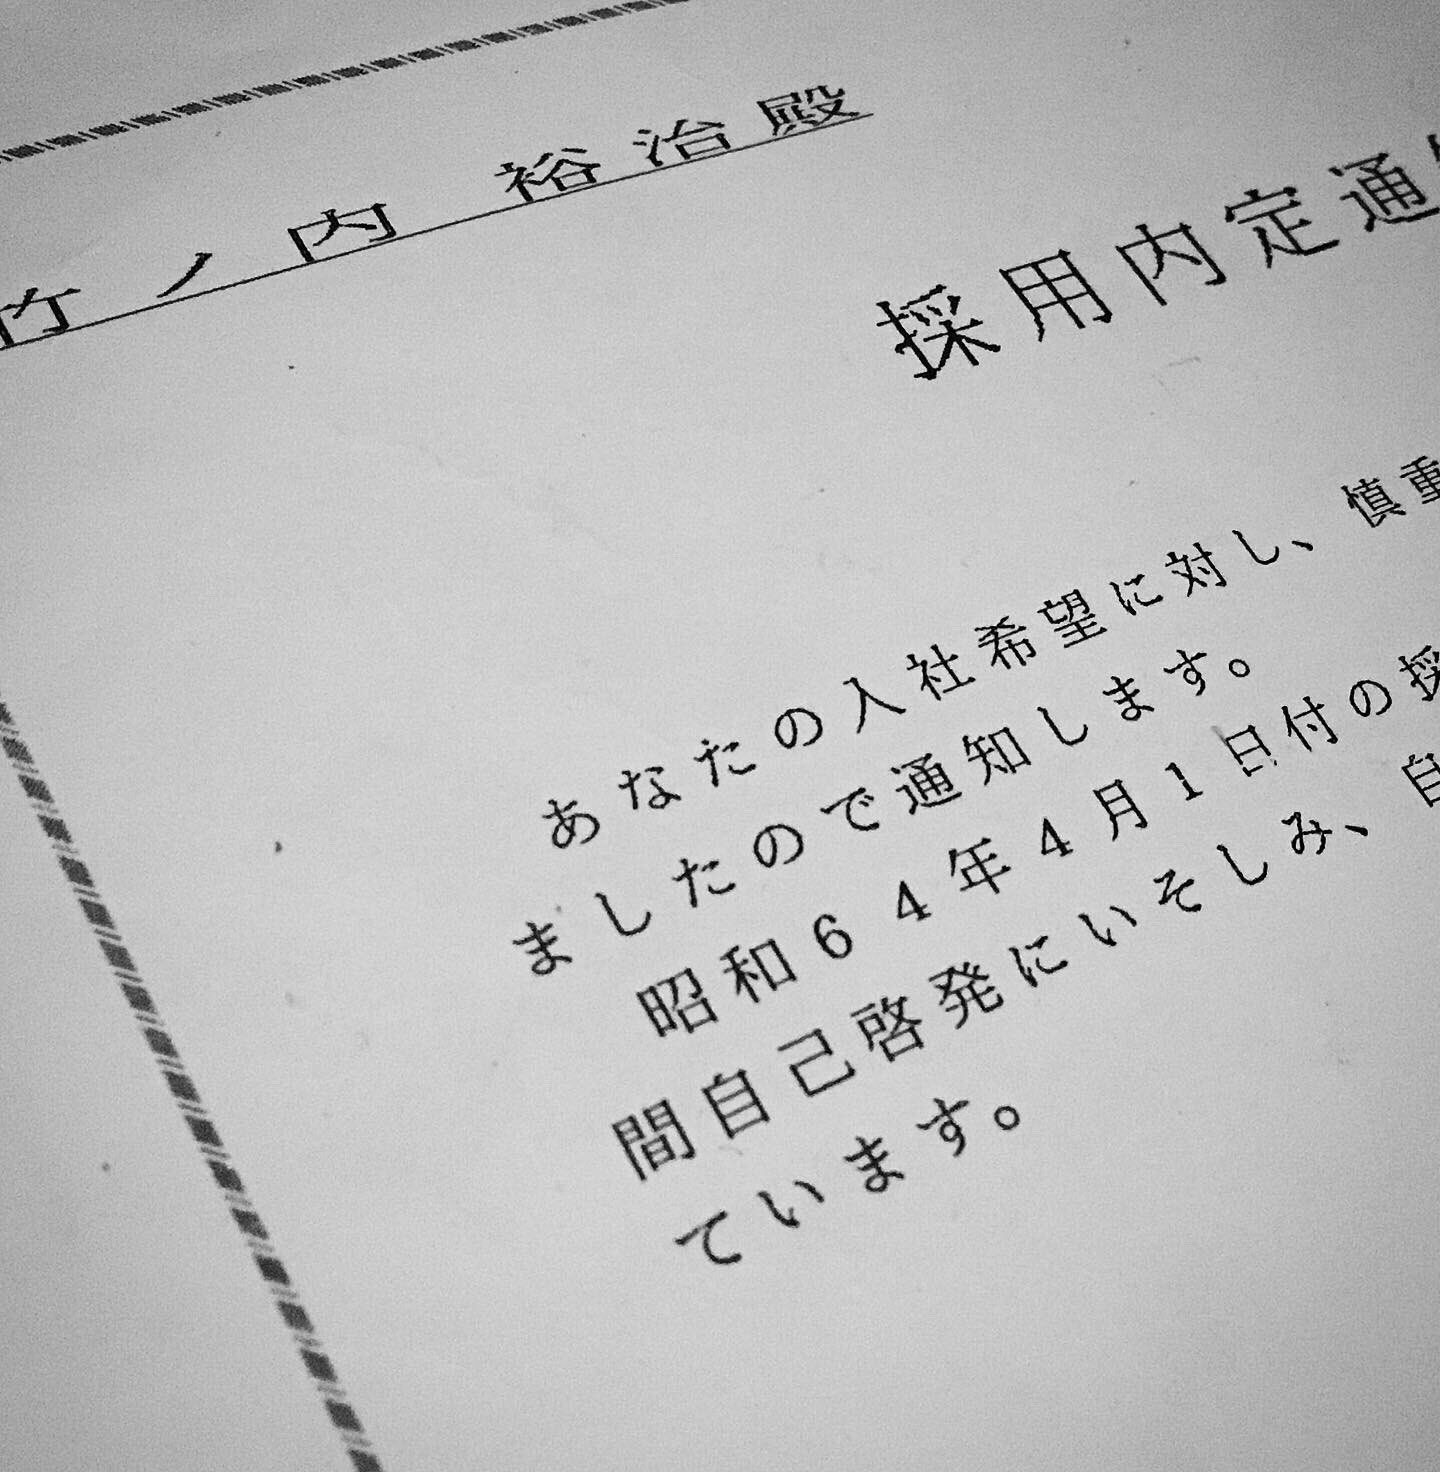 竹ノ内 裕治殿
採用内定通
あなたの入社希望に対し、慎重
ましたので通知します。
昭和64年4月1日付の採
間自己啓発にいそしみ、自
ています。